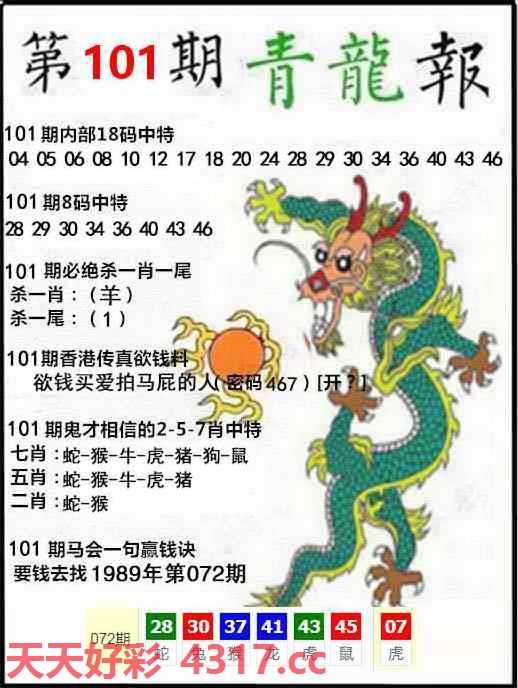 第101期青龍報
101期内部18码中特
04 05 06 08 10 12 17 18 20 24 28 29 30 34 36 40 43 46
101期8码中特
28 29 30 34 36 40 43 46
101期必绝杀一肖一尾
杀一肖：（羊）
杀一尾：（1）
101期香港传真欲钱料
欲钱买爱拍马屁的人(密码467)[开？]
101期鬼才相信的2-5-7肖中特
七肖：蛇-猴-牛-虎-猪-狗-鼠
五肖：蛇-猴-牛-虎-猪
二肖：蛇-猴
101期马会一句赢钱诀
要钱去找1989年第072期
072期 28 30 37 41 43 45 07
蛇 兔 猴 龙 虎 鼠 虎
天天好彩 4317.cc